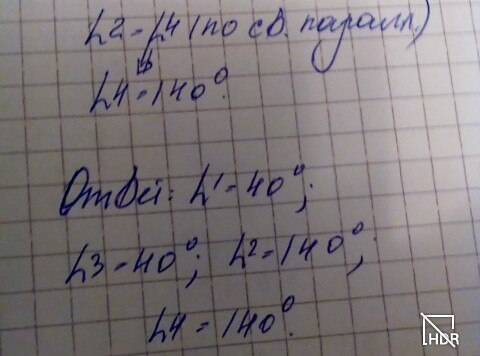 ∠2=∠4 (по св. паралл.)
⇓
∠4=140°.
Ответ: ∠1=40°;
∠3=40°; ∠2=140°;
∠4=140°.
HDR